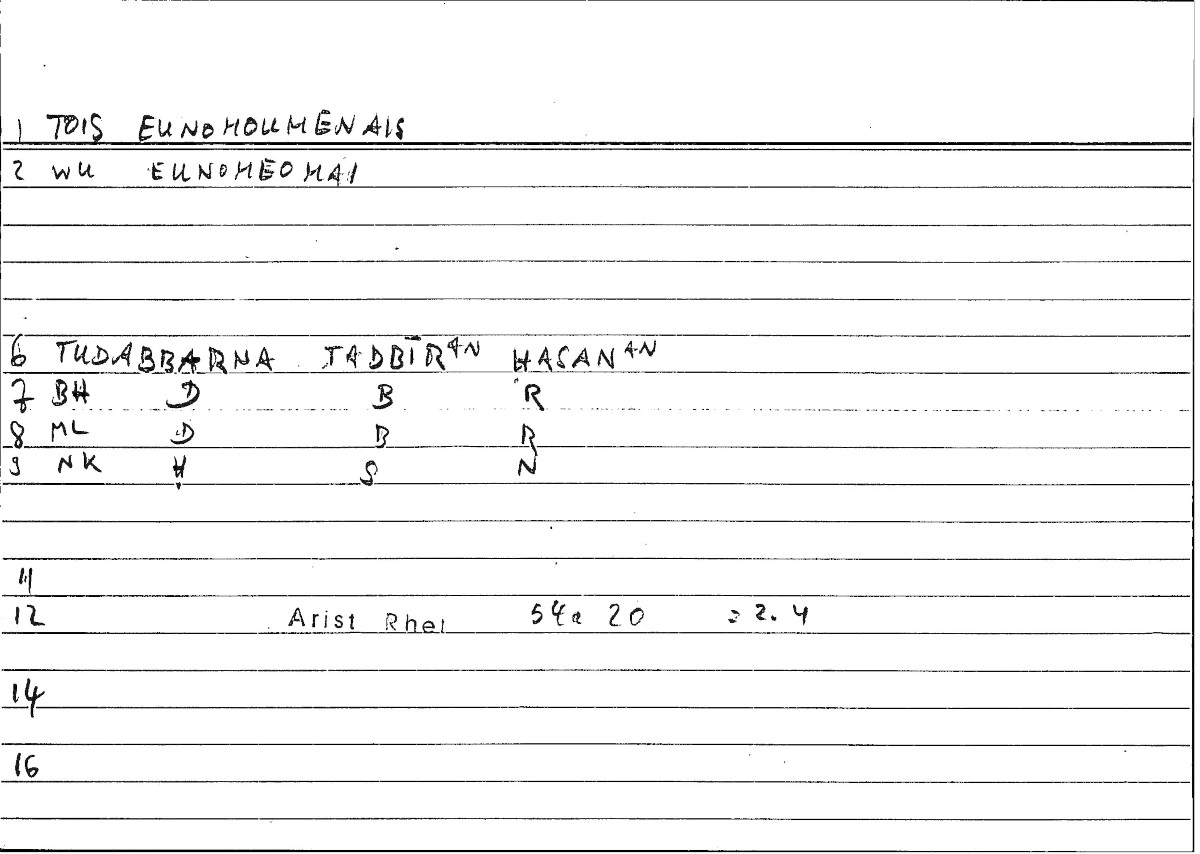 1 TOIS EUNOMOUMENAIS
2 WU EUNOMEOMAI
6 TUDABBARNA TADBĪR^AN HASAN^AN
7 BH D B R
8 ML D B R
9 NK Ḥ S N
11
12 Arist Rhet 54a 20 = 2. 4
14
16